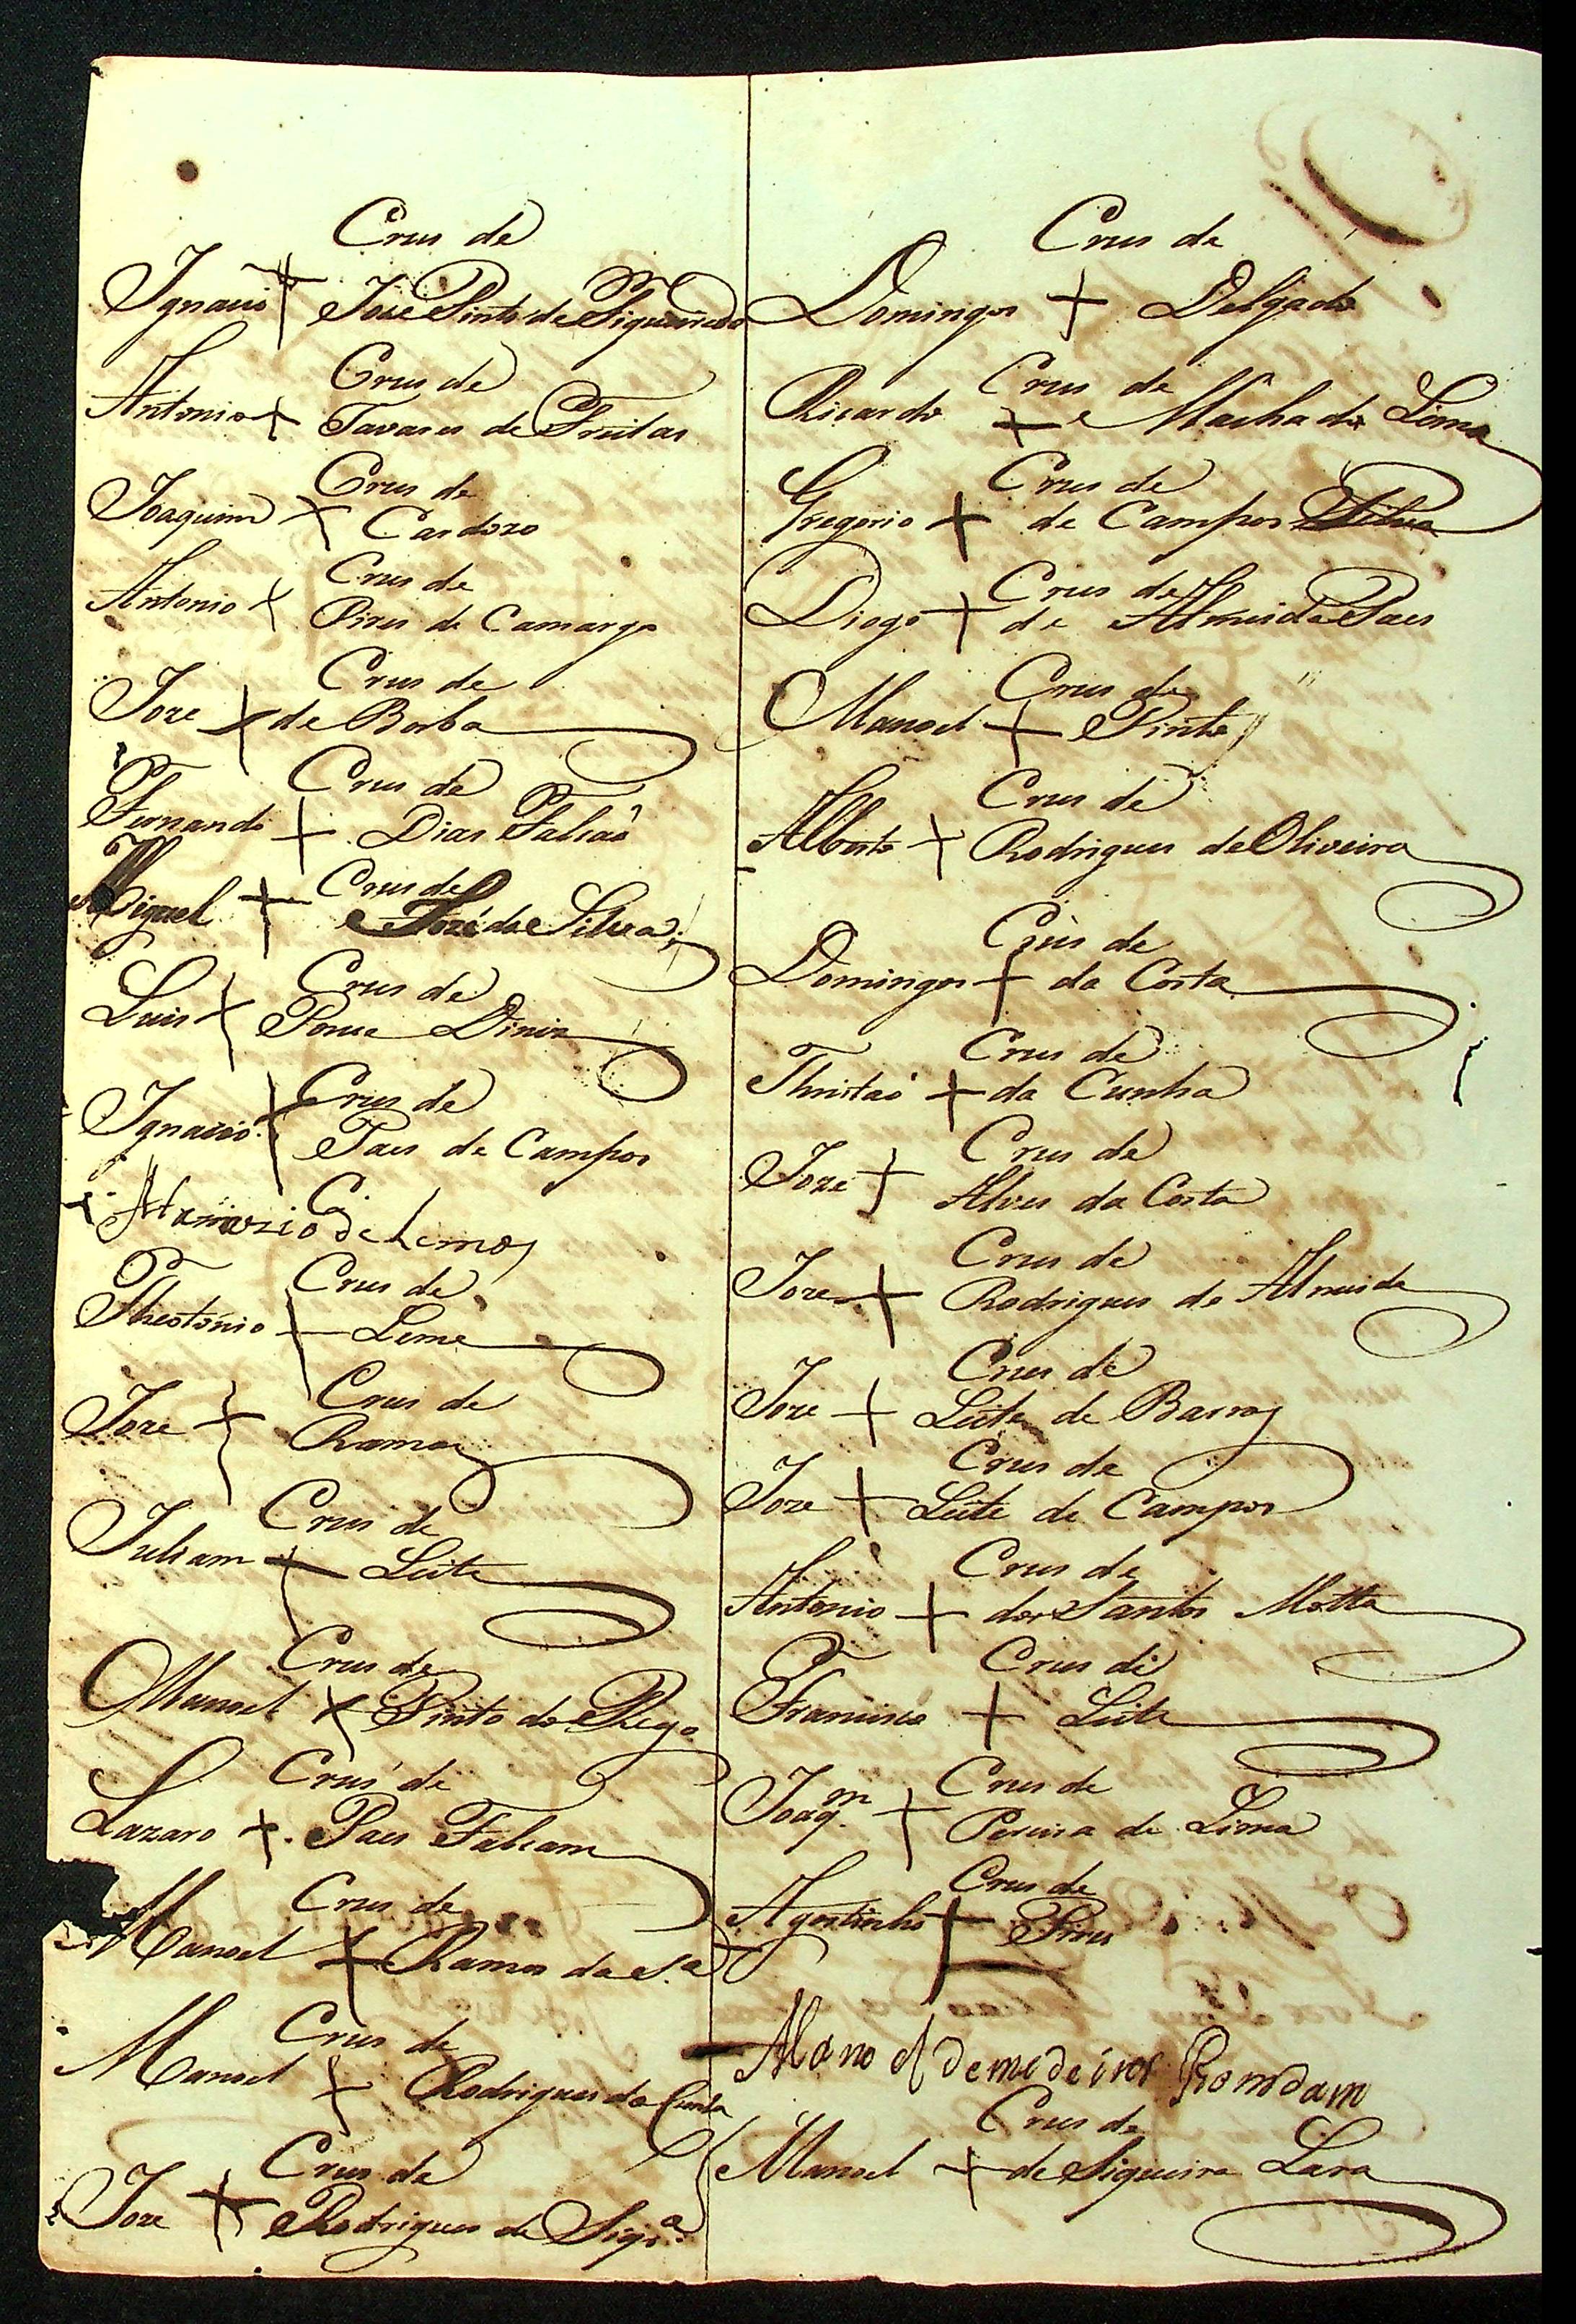 Crus de
Ignacio + Jose Pinto de Siqueira
Crus de
Antonio + Tavares de Freitas
Crus de
Joaquim + Cardozo
Crus de
Antonio + Pires de Camargo
Crus de
Joze + de Borba
Crus de
Fernando + Dias Falcaõ
Crus de
Miguel + José da Silva
Crus de
Luis + Ponce Diniz
Crus de
Ignacio + Paes de Campos
Atanazio de Lemos
Crus de
Theotonio + Leme
Crus de
Joze + Ramos
Crus de
Juliam + Leite
Crus de
Manoel + Pinto do Rego
Crus de
Lazaro + Paes Falcam
Crus de
Manoel + Ramos da S.ª
Crus de
Manoel + Rodrigues da Cunha
Crus de
Joze + Rodrigues de Siqr.ª
Crus de
Domingos + Delgado
Crus de
Ricardo + Machado Lima
Crus de
Gregorio + de Campos Silva
Crus de
Diogo + de Almeida Paes
Crus de
Manoel + Pinto
Crus de
Alberto + Rodrigues de Oliveira
Crus de
Domingos + da Costa
Crus de
Thristaõ + da Cunha
Crus de
Joze + Alves da Costa
Crus de
Joze + Rodrigues de Almeida
Crus de
Joze + Leite de Barros
Crus de
Joze + Leite de Campos
Crus de
Antonio + dos Santos Motta
Crus de
Francisco + Leite
Crus de
Joaq.m + Pereira de Lima
Crus de
Agostinho + Pires
Mano el de medeiros Romdam
Crus de
Manoel + de Siqueira Lara